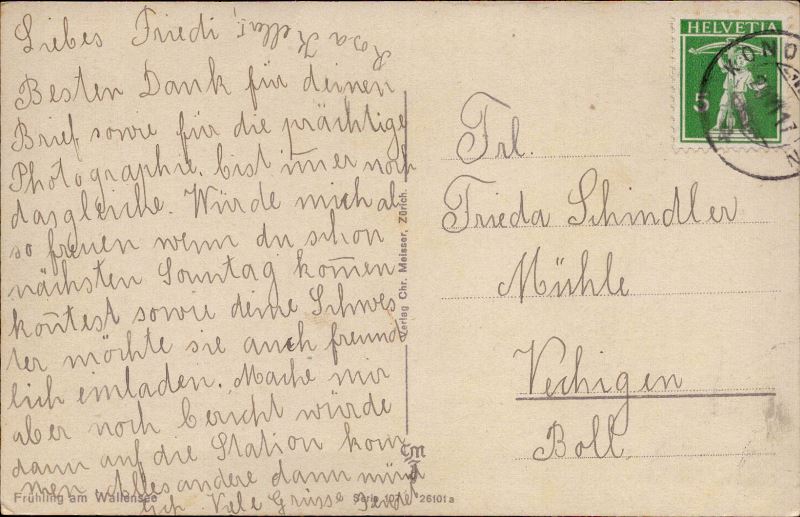 Liebes Friedi!
Besten Dank für deinen
Brief sowie für die prächtige
Photographie. bist im̄er noch
dasgleiche. Würde mich al
so freuen wenn du schon
nächsten Sonntag kom̄en
kon̄test sowie deine Schwes
ter möchte sie auch freund
lich einladen. Mache mir
aber noch bericht würde
dann auf die Station kom
men. Alles andere dann münd
lich. Viele Grüsse sendet
Rosa Keller
Frühling am Wallensee
Serie 107 26101a
Verlag Chr. Meisser, Zürich.
CM
HELVETIA
5
KONO
Frl.
Frieda Schindler
Mühle
Vechigen
Boll.